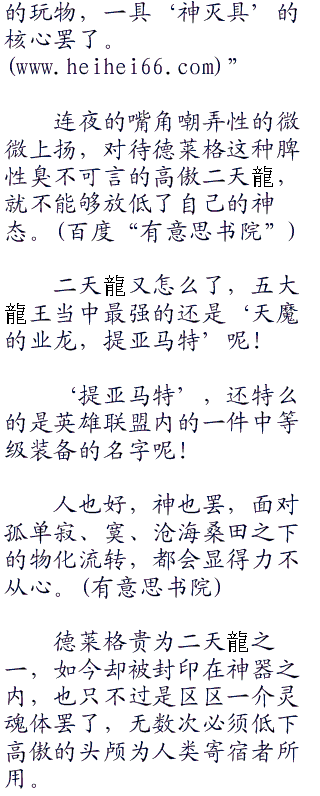 的玩物，一具‘神灭具’的
核心罢了。
(www.heihei66.com)”
连夜的嘴角嘲弄性的微
微上扬，对待德莱格这种脾
性臭不可言的高傲二天龍，
就不能够放低了自己的神
态。(百度“有意思书院”)
二天龍又怎么了，五大
龍王当中最强的还是‘天魔
的业龙，提亚马特’呢！
‘提亚马特’，还特么
的是英雄联盟内的一件中等
级装备的名字呢！
人也好，神也罢，面对
孤单寂、寞、沧海桑田之下
的物化流转，都会显得力不
从心。(有意思书院)
德莱格贵为二天龍之
一，如今却被封印在神器之
内，也只不过是区区一介灵
魂体罢了，无数次必须低下
高傲的头颅为人类寄宿者所
用。